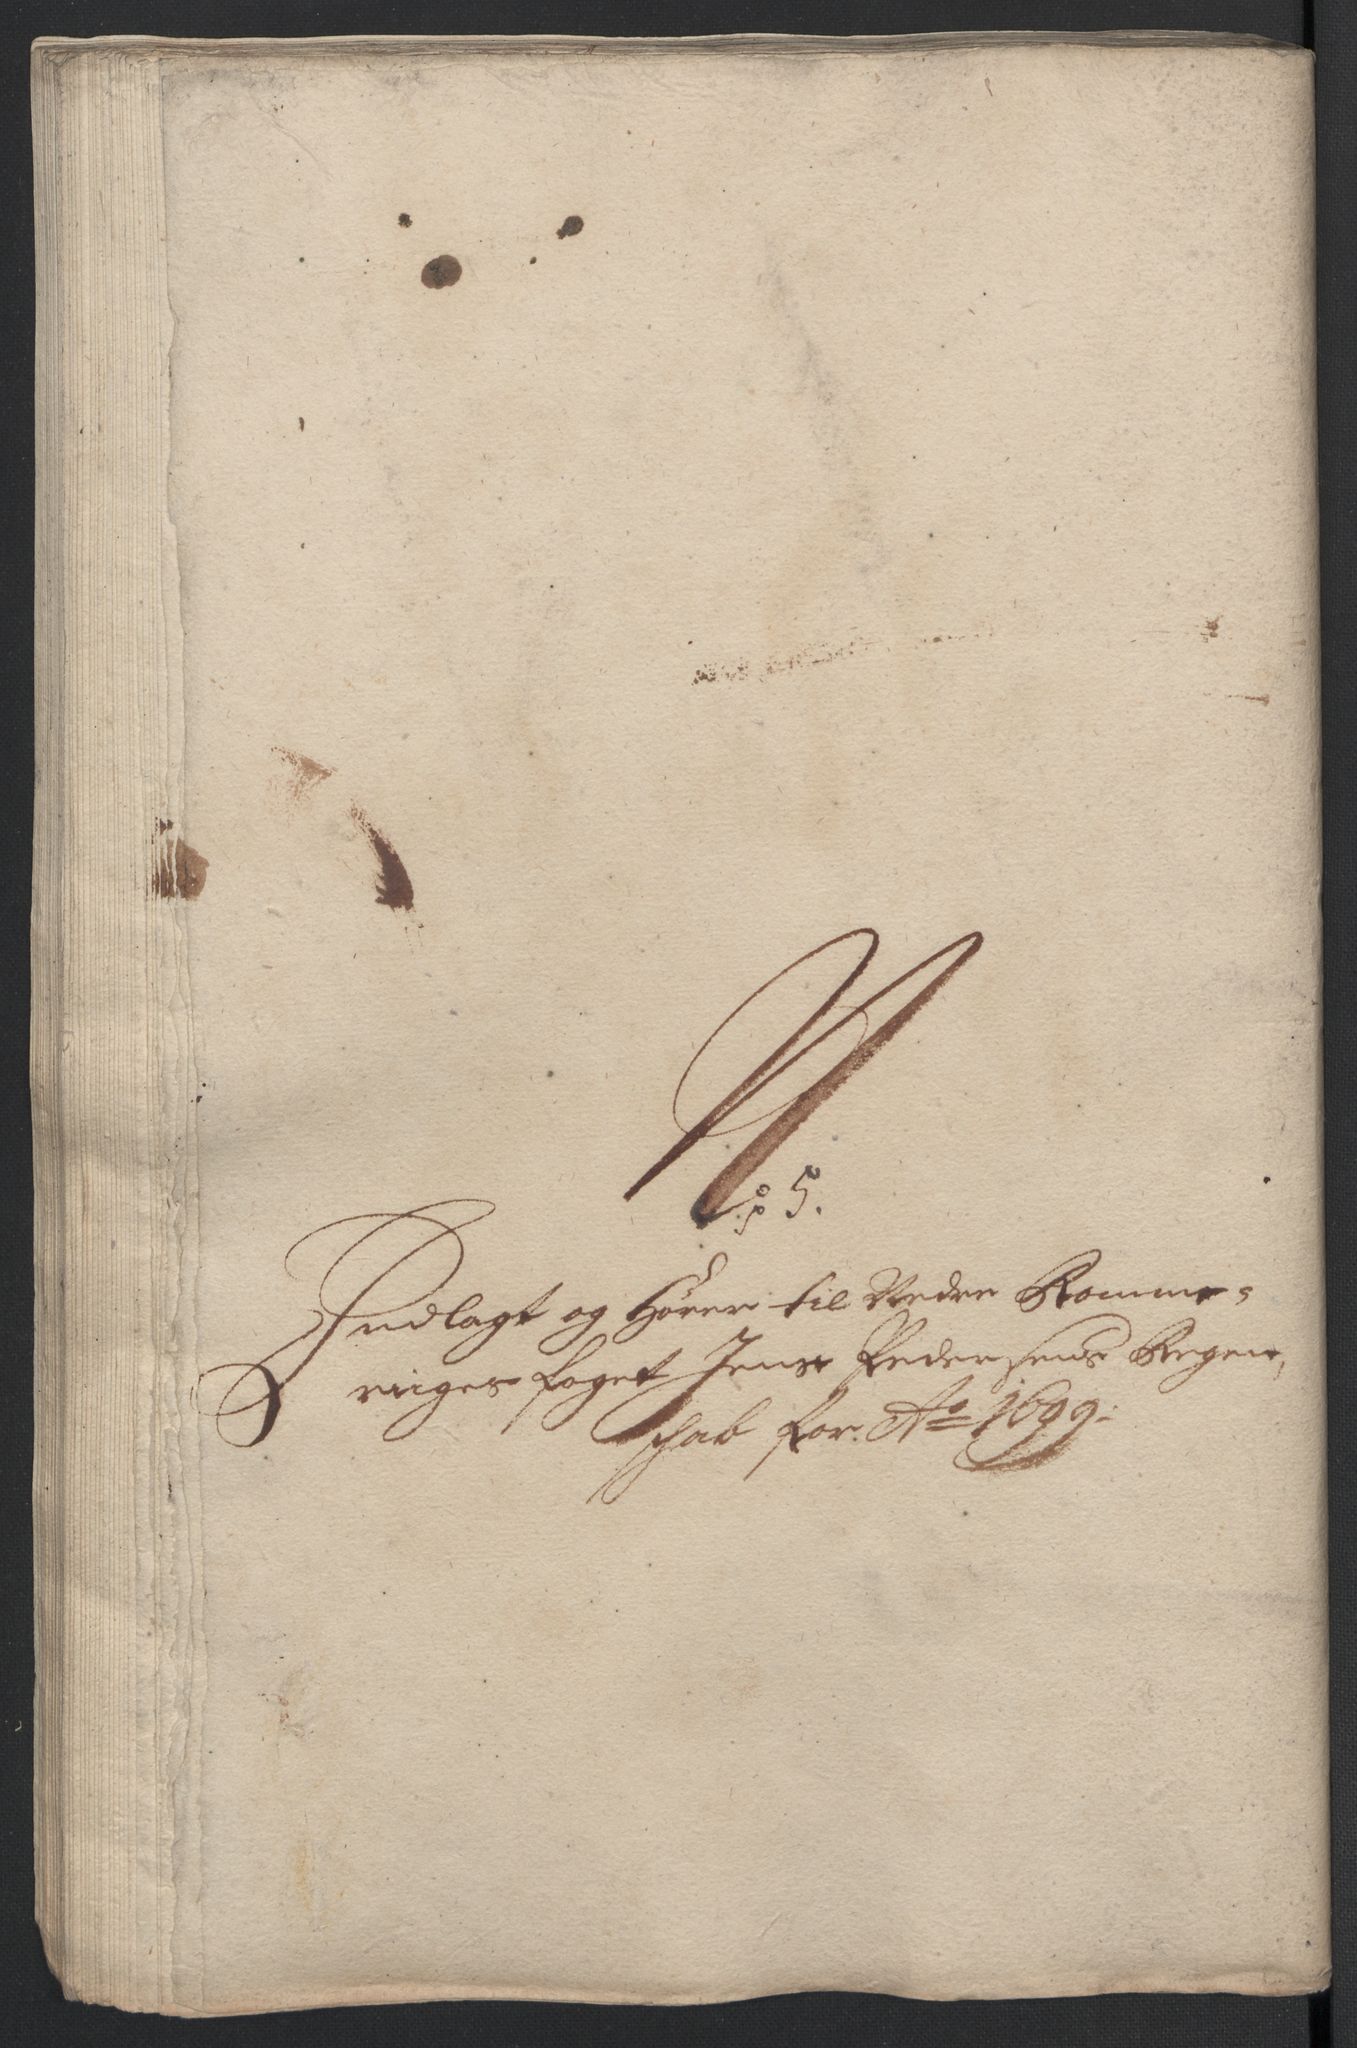 N: 5.
Indlagt og Hører til Nedre Romme-
riiges foget Jens Pedersens Regen,
schab for. Ao 1699.